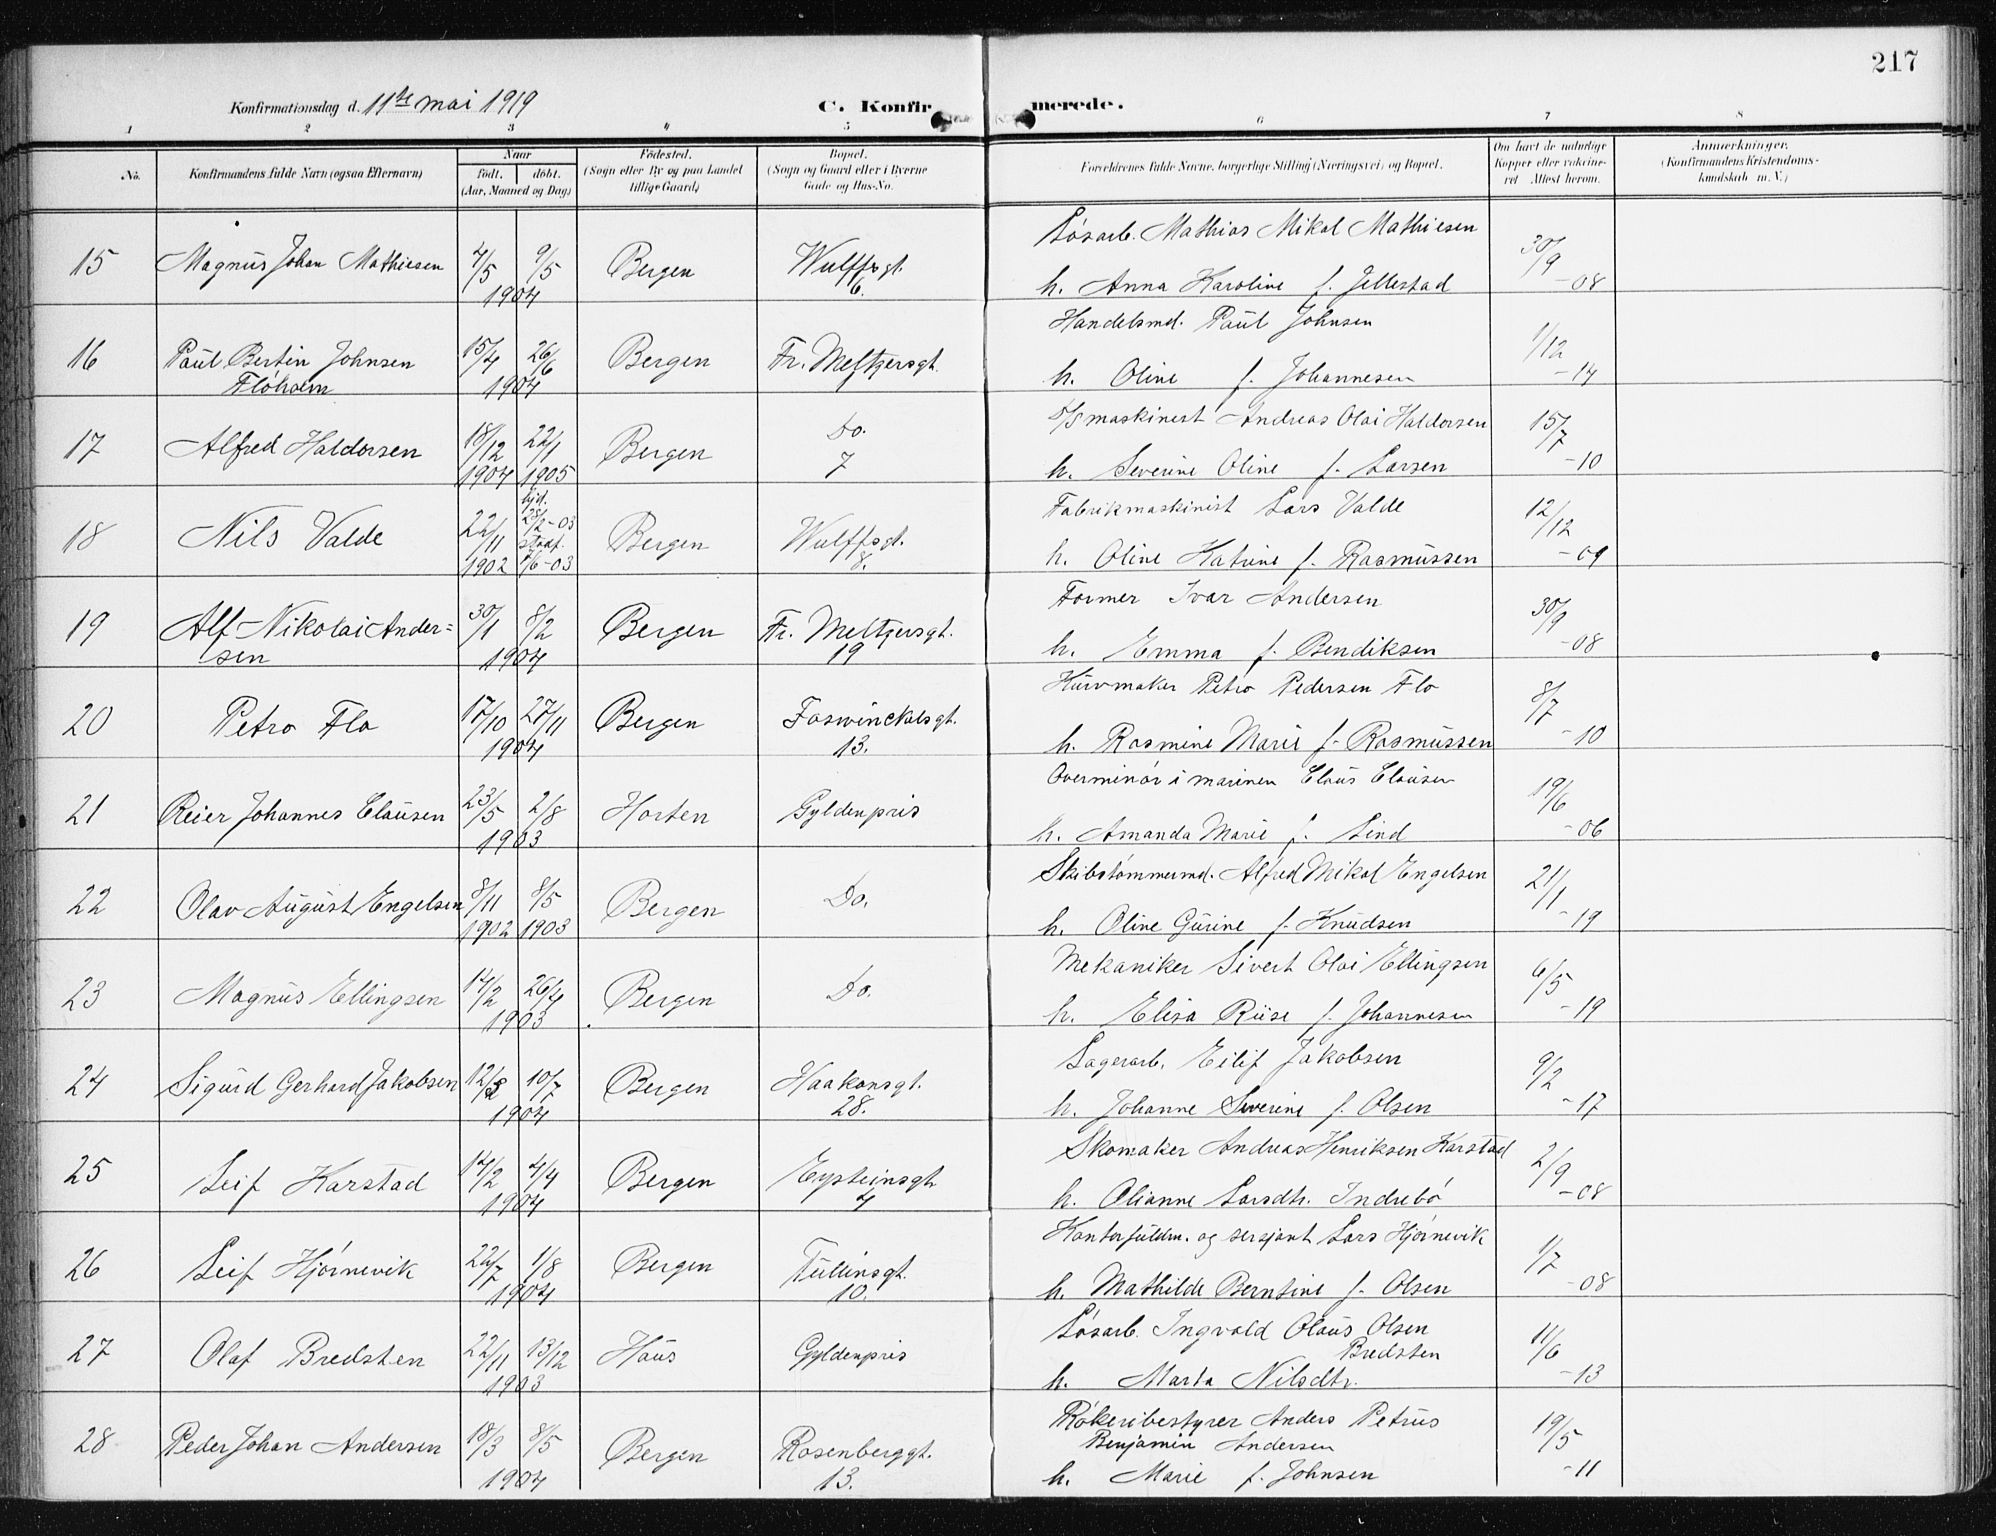 217
Konfirmationsdag d. 11te mai 1919 C. Konfirmerede.
1 2 3 4 5 6 7 8
No. Konfirmandens fulde Navn (ogsaa Efternavn) Naar født. døbt. (Aar, Maaned og Dag) Fødested. (Sogn eller By og paa Landet tillige Gaard) Bopæl. (Sogn og Gaard eller i Byerne Gade og Hus-No. Forældrenes fulde Navne, borgerlige Stilling (Næringsvei) og Bopæl. Om havt de naturlige Kopper eller vaksineret Attest herom. Anmærkninger. (Konfirmandens Kristendomskundskab m. V.)
15 Magnus Johan Mathiesen 4/5 9/5 1904 Bergen Wulffsgt. 6. Løsarb. Mathias Mikal Mathiesen
h. Anna Karoline f. Jellestad 30/9 -08
16 Paul Bertin Johnsen Floholm 15/4 26/6 1904 Bergen Fr. Meltzersgt. Handelsmd. Paul Johnsen
h. Oline f. Johannesen 1/12 -14
17 Alfred Haldorsen 18/12 1904 22/1 1905 Bergen Do. 7 D/S maskinist Andreas Olai Haldorsen
h. Severine Oline f. Larsen 15/7 -10
18 Nils Valde 22/11 1902 hjd. 28/2-03 stadf. 1/6-03 Bergen Wulffsgt. 8. Fabrikmaskinist Lars Valde
h. Oline Katrine f. Rasmussen 12/12 -09
19 Alf Nikolai Andersen 30/1 8/2 1904 Bergen Fr. Meltzersgt. 19 Former Ivar Andersen
h. Emma f. Bendiksen 30/9 -08
20 Petro Flo 17/10 27/11 1904 Bergen Foswinckelsgt. 13. Kurvmaker Petro Pedersen Flo
h. Rasmine Marie f. Rasmussen 8/7 -10
21 Reier Johannes Clausen 23/5 2/8 1903 Horten Gyldenpris Overminør i marinen Claus Clausen
h. Amanda Marie f. Lind 19/6 -06
22 Olav August Engelsen 8/11 1902 8/5 1903 Bergen Do. Skibstømmermd. Alfred Mikal Engelsen
h. Oline Gurine f. Knudsen 21/1 -19
23 Magnus Ellingsen 14/2 26/4 1903 Bergen Do. Mekaniker Sivert Olai Ellingsen
h. Elisa Riise f. Johannesen 6/5 -19
24 Sigurd Gerhard Jakobsen 12/3 10/7 1904 Bergen Haakonsgt. 28. Lagerarb. Eilif Jakobsen
h. Johanne Severine f. Olsen 9/2 -17
25 Leif Karstad 14/2 4/4 1904 Bergen Eysteinsgt. 4 Skomaker Andreas Henriksen Karstad
h. Olianne Larsdtr. Indrebø 2/9 -08
26 Leif Hjørnevik 22/7 1/8 1904 Bergen Tullinsgt. 10. Kontorfuldm. og sersjant Lars Hjørnevik
h. Mathilde Berntine f. Olsen 1/7 -08
27 Olaf Bredsten 22/11 13/12 1903 Haus Gyldenpris Løsarb. Ingvald Olaus Olsen Bredsten
h. Marta Nilsdtr. 11/6 -13
28 Peder Johan Andersen 18/3 8/5 1904 Bergen Rosenberggt. 13. Røkeribestyrer Anders Petrus Benjamin Andersen
h. Marie f. Johnsen 19/5 -11